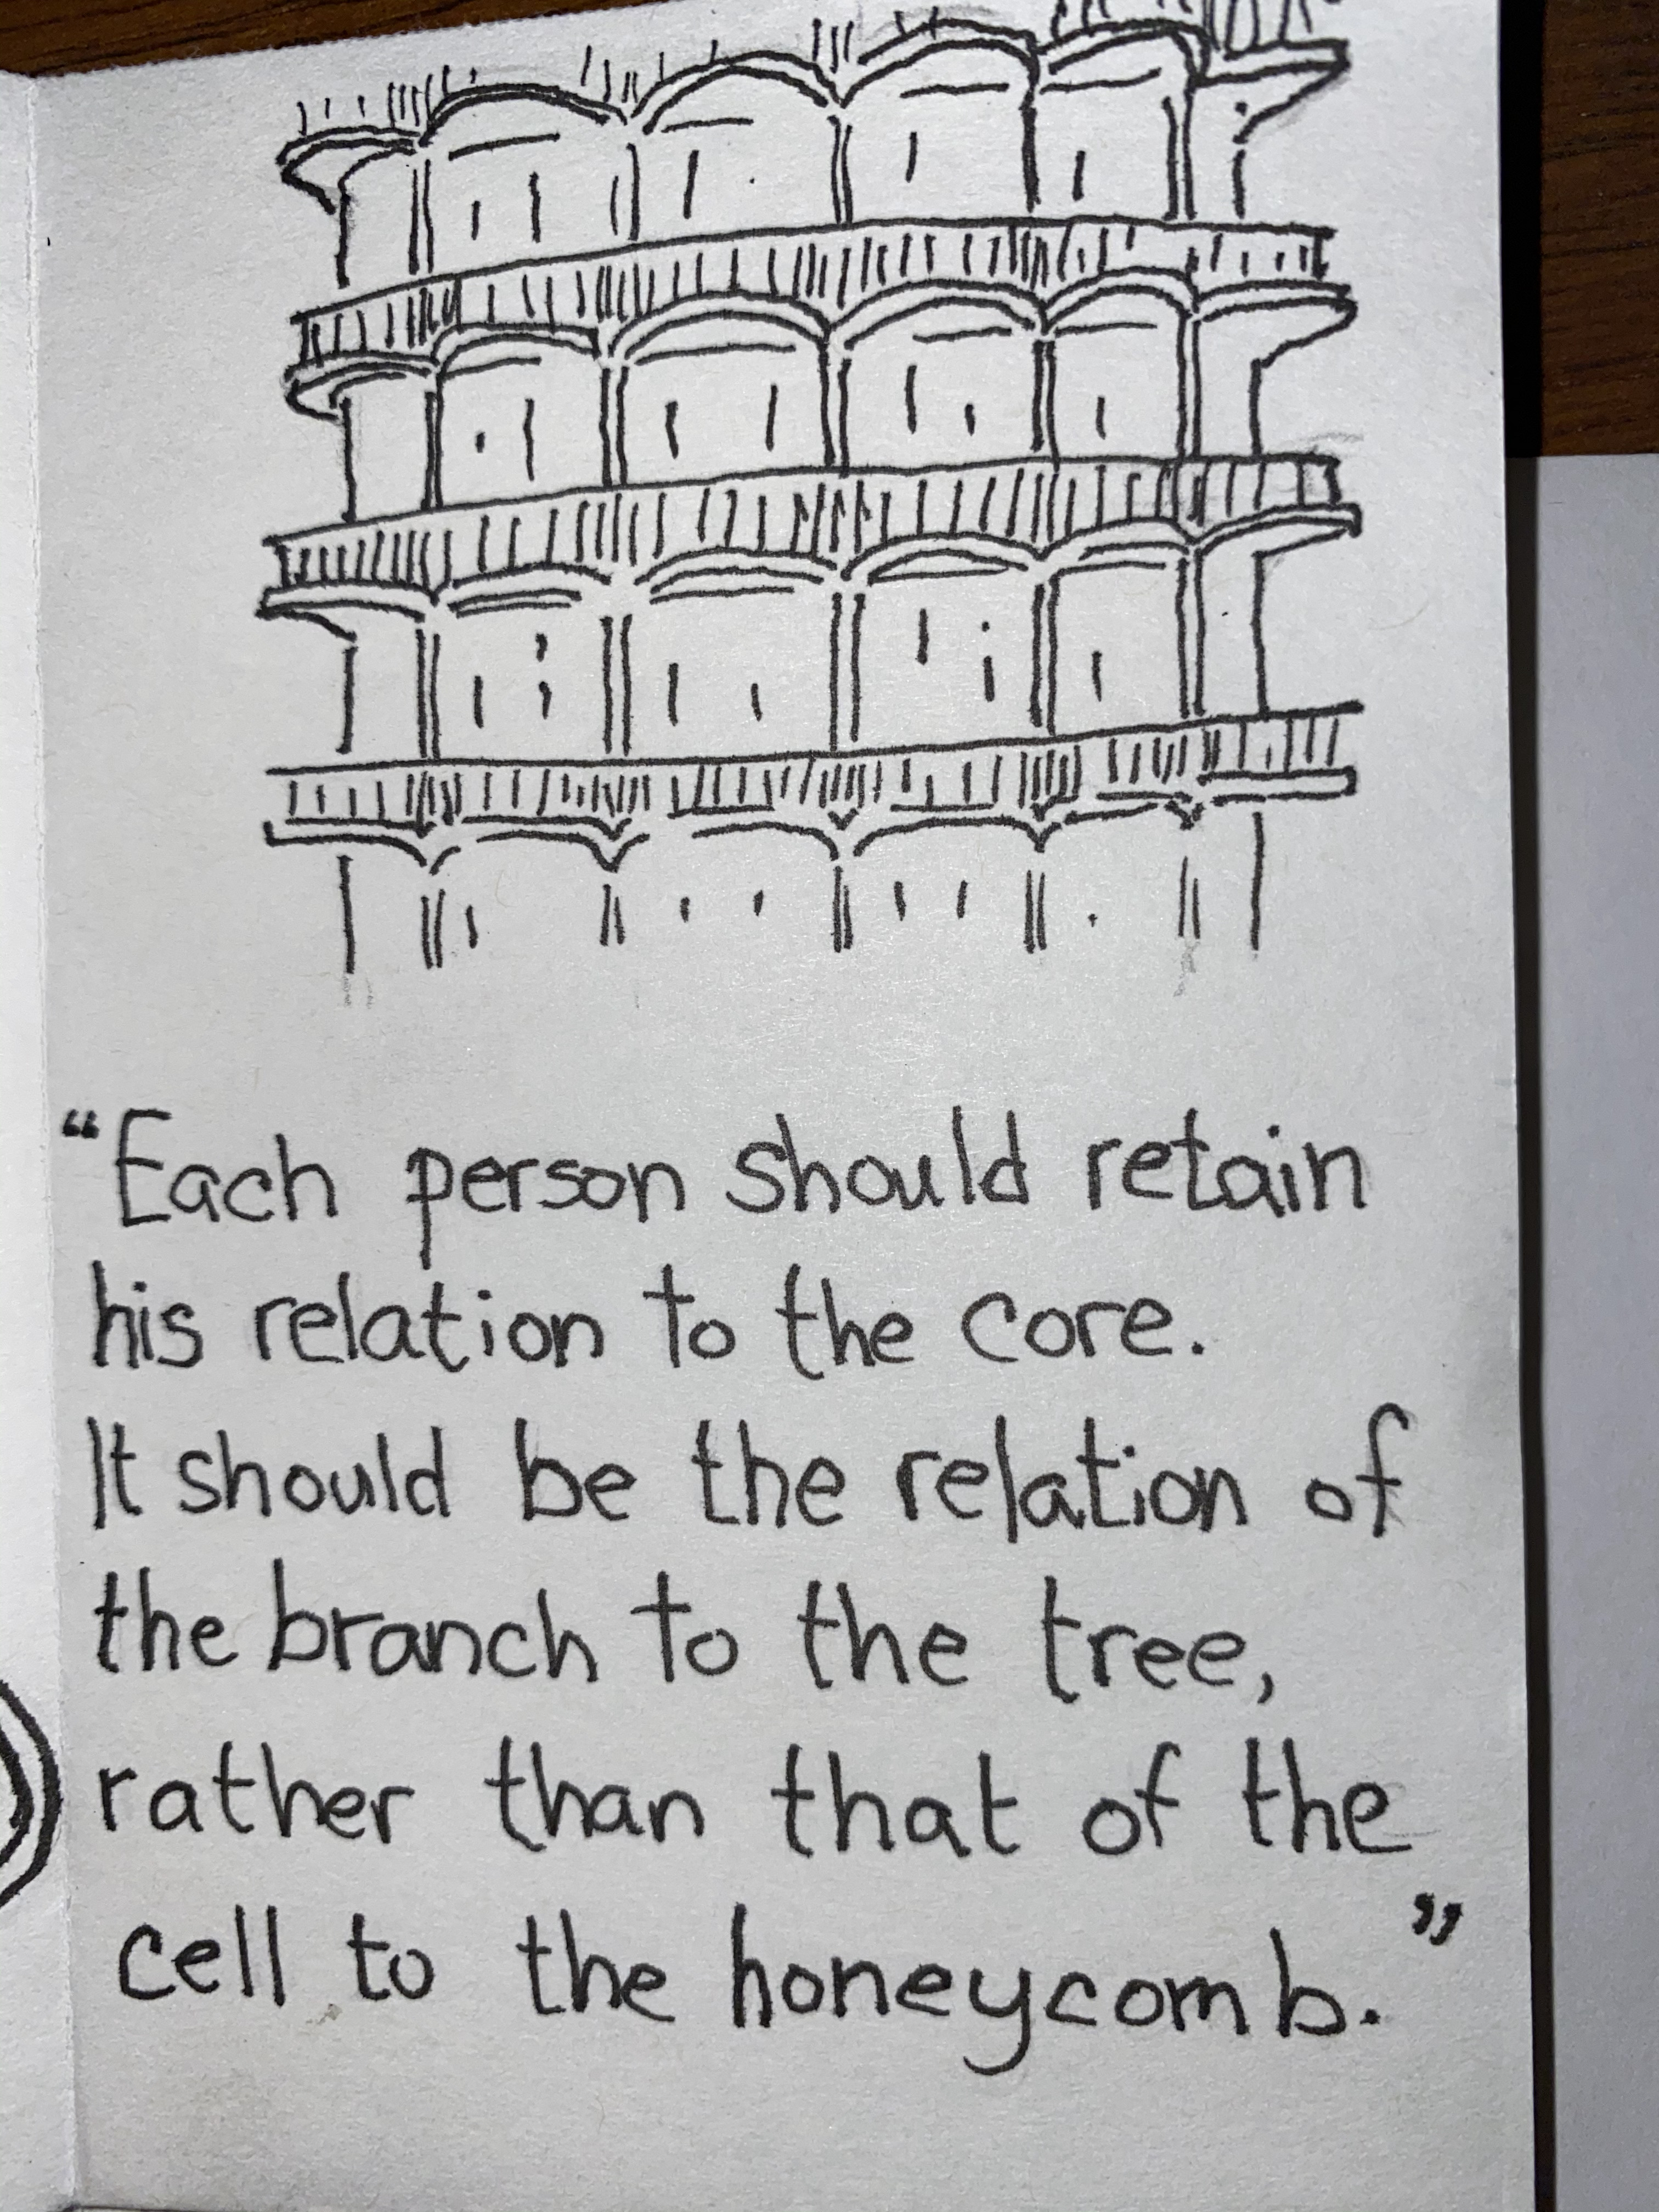 “Each person should retain
his relation to the core.
It should be the relation of
the branch to the tree,
rather than that of the
cell to the honeycomb.”